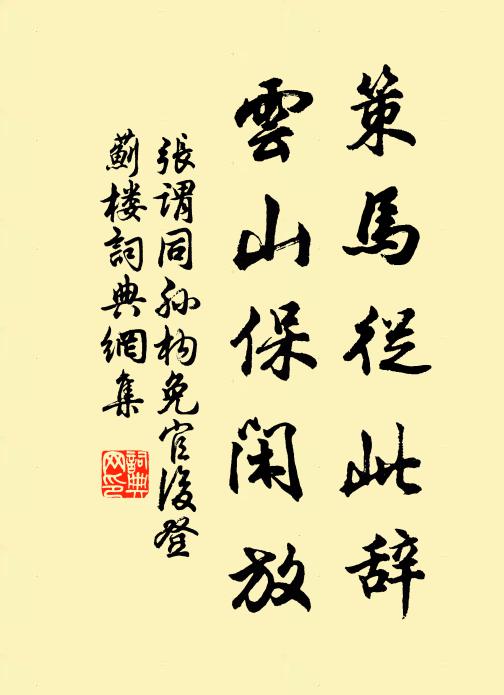 策馬從此辞
雲山保閑放
張謂同孙构免官後登
薊楼詞典網集
詞典
网印